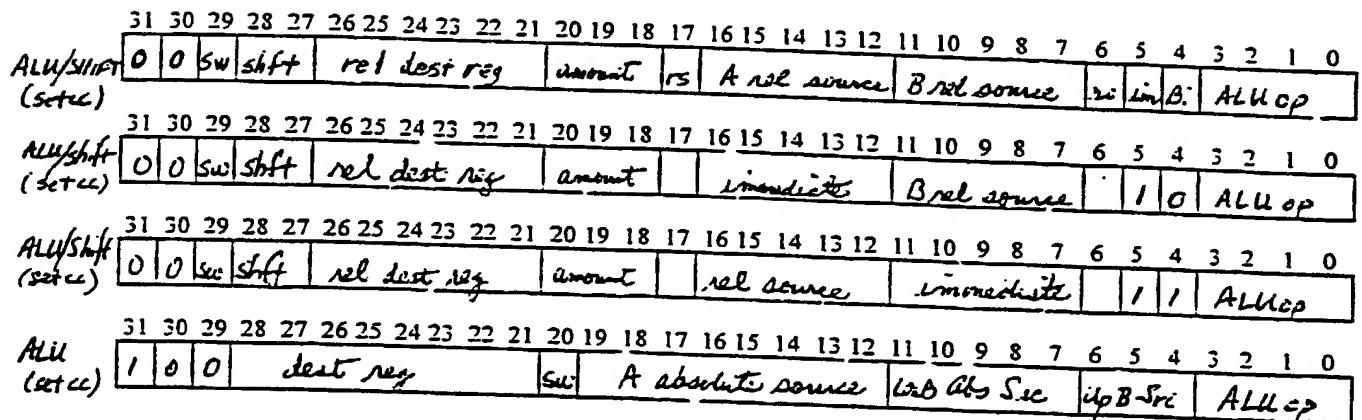 31 30 29 28 27 26 25 24 23 22 21 20 19 18 17 16 15 14 13 12 11 10 9 8 7 6 5 4 3 2 1 0
ALU/SHIFT 0 0 sw shft rel dest reg amount rs A rel source B rel source im B. ALU op
(setcc)
31 30 29 28 27 26 25 24 23 22 21 20 19 18 17 16 15 14 13 12 11 10 9 8 7 6 5 4 3 2 1 0
ALU/shft 0 0 sw shft rel dest reg amount immediate B rel source 1 0 ALU op
(setcc)
31 30 29 28 27 26 25 24 23 22 21 20 19 18 17 16 15 14 13 12 11 10 9 8 7 6 5 4 3 2 1 0
ALU/Shft 0 0 sw shft rel dest reg amount rel source immediate 1 1 ALU op
(setcc)
31 30 29 28 27 26 25 24 23 22 21 20 19 18 17 16 15 14 13 12 11 10 9 8 7 6 5 4 3 2 1 0
ALU 1 0 0 dest reg sw A absolute source B Abs Src B Src ALU op
(setcc)